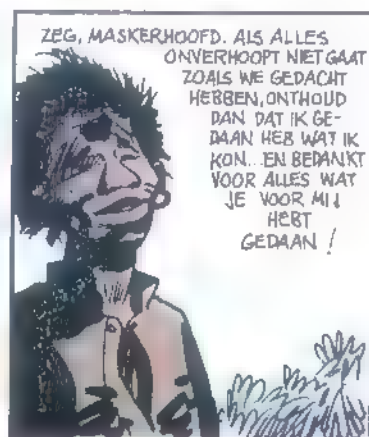 ZEG, MASKERHOOFD. ALS ALLES
ONVERHOOPT NIET GAAT
ZOALS WE GEDACHT
HEBBEN, ONTHOUD
DAN DAT IK GE-
DAAN HEB WAT IK
KON... EN BEDANKT
VOOR ALLES WAT
JE VOOR MIJ
HEBT
GEDAAN!